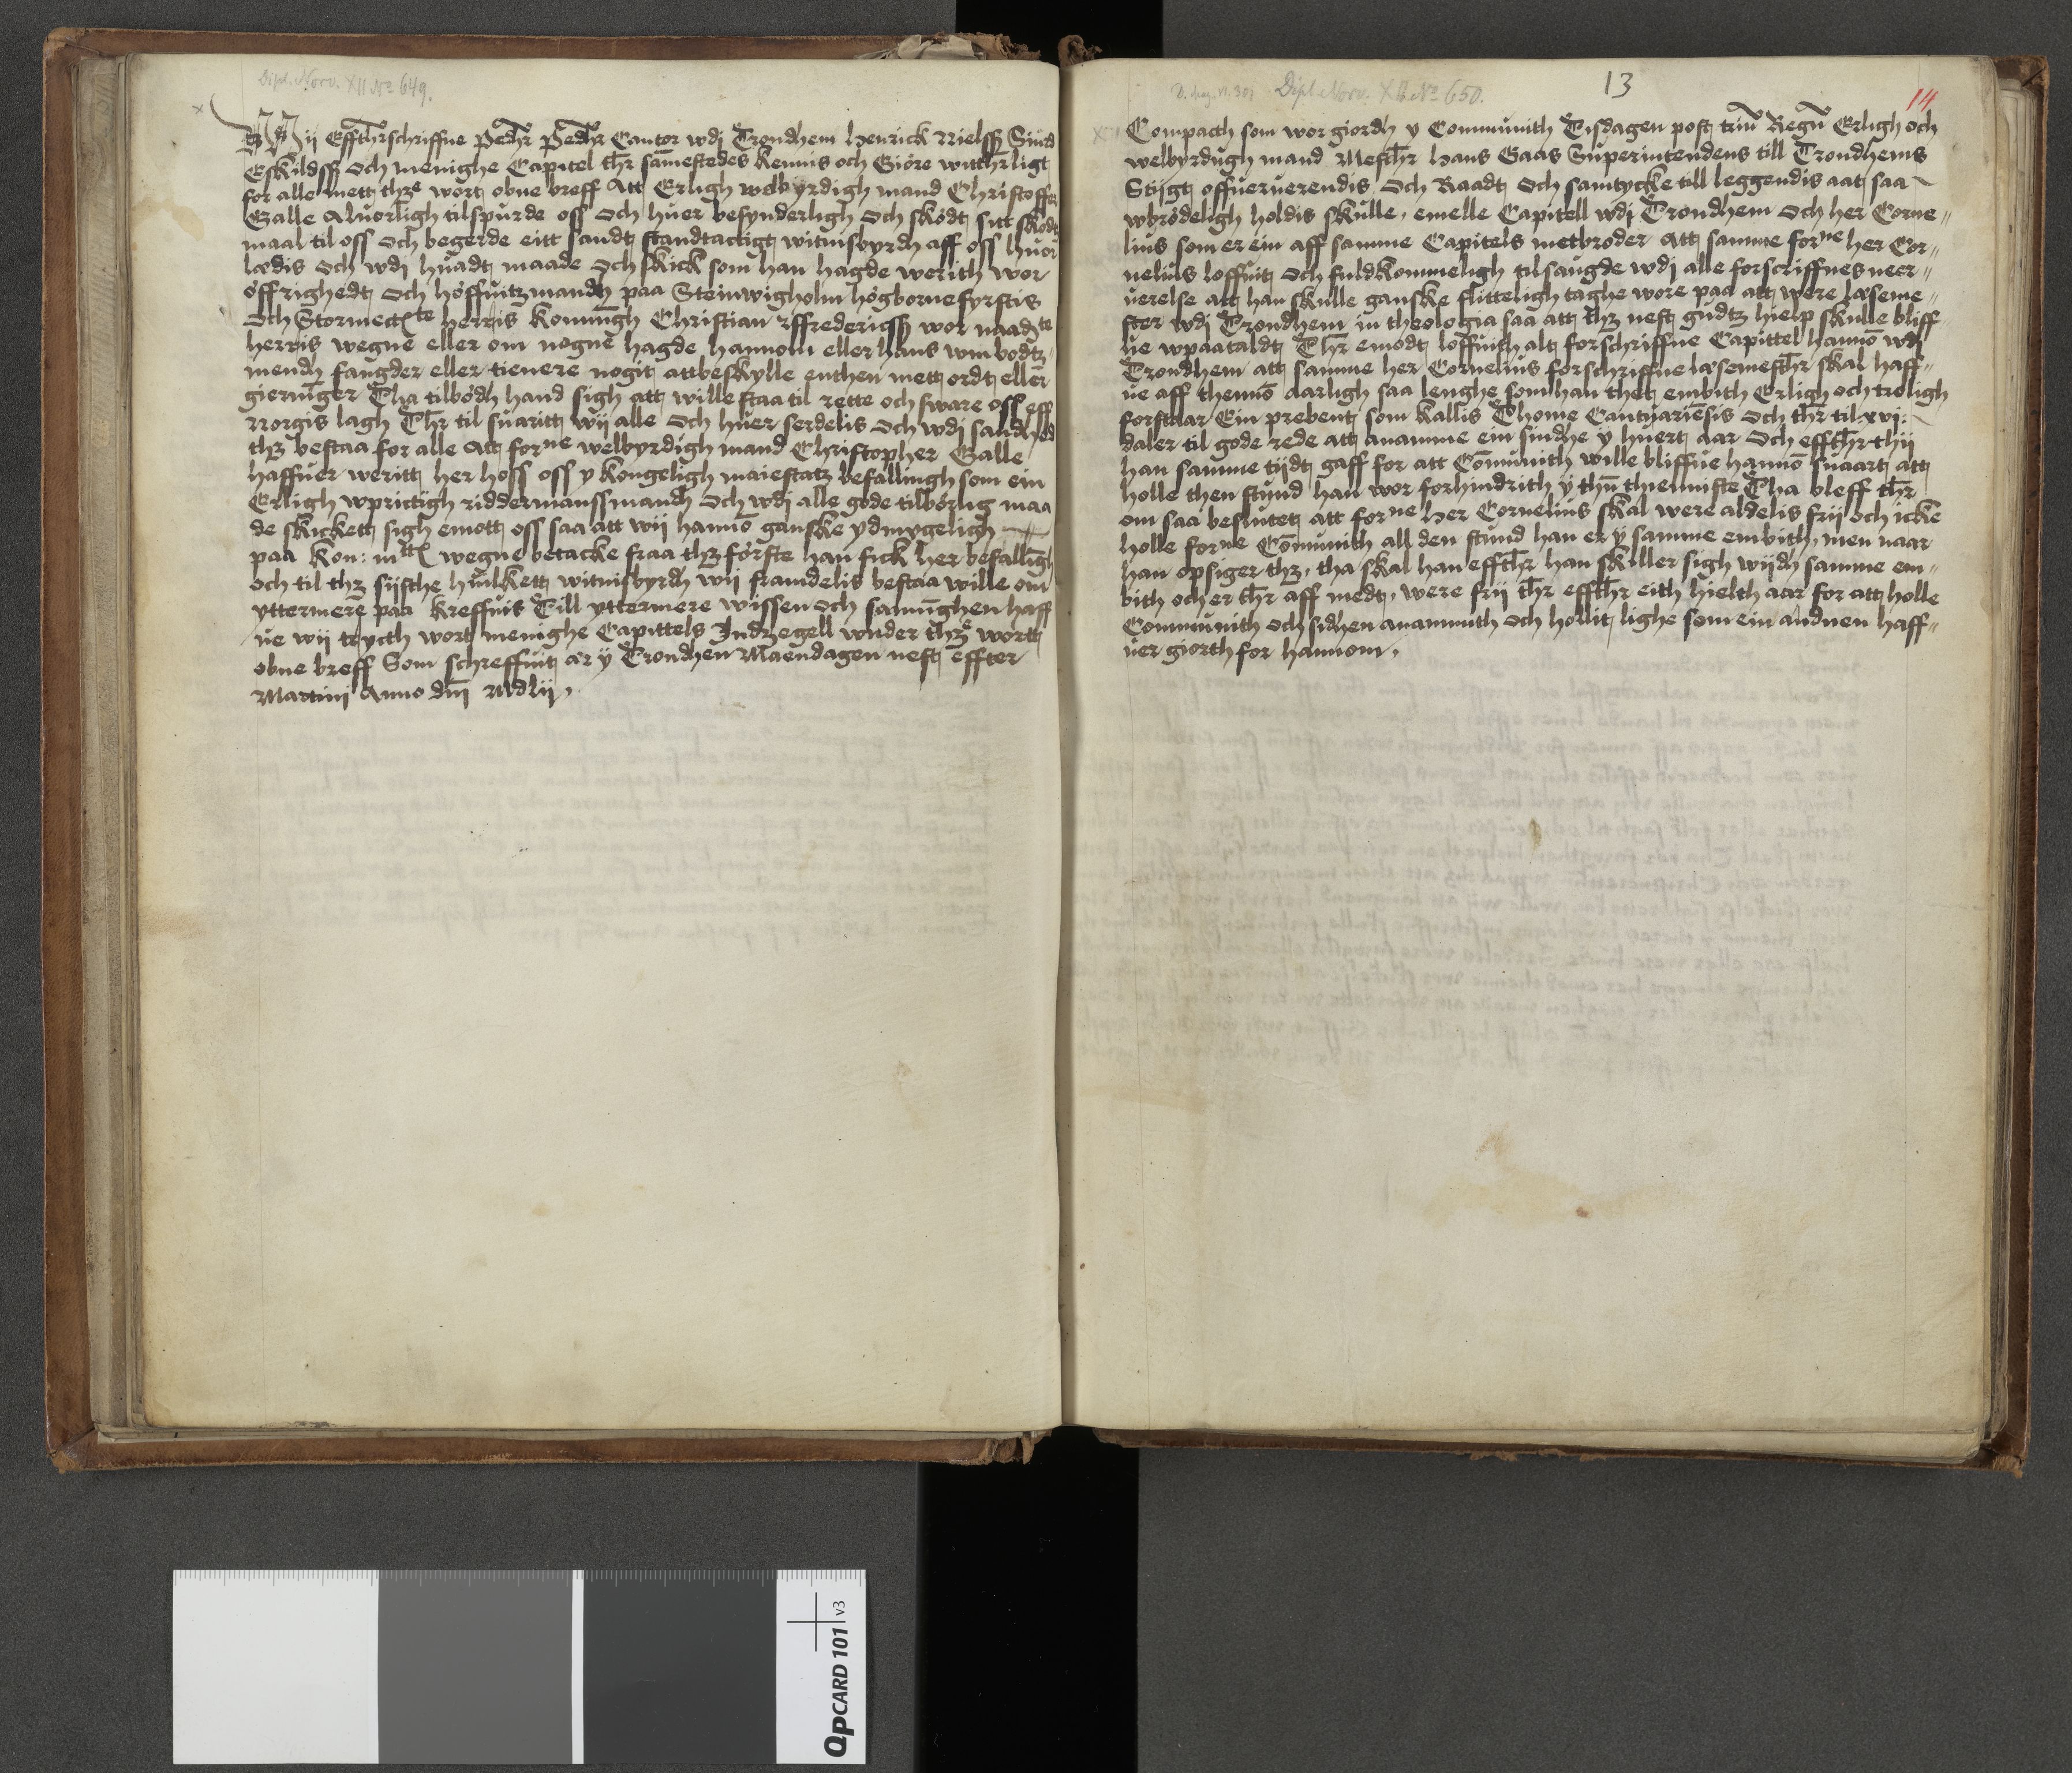 Dipl. Norv. XII No 649.
Wij Effthrschriffne Pedhr Pedhr Cantor wdj Trondhem Henrick Nielssz Siurd
Eskildssz och menighe Capitel thr samestedes kennis och Giöre witthrligt
for alle mett thze wort obne breff Att Erligh welbyrdigh mand Christoffer
Galle Aluorligh tilspurde oss och huer besynderligh och sködt sitt skodz
maal til oss och begerde eitt sandt standtactigt witnisbyrdh aff oss huor
lædis och wdj huadt maade och skick som han hagde werith wor
öffrighedt och höffuitzmandh paa Steinwigholm högbornefyrstis
och Stormectte herris Konningh Christian ffredericssz wor naadte
herris wegne eller om nogne hagde hannom eller hans wmbodtz
mendh faugder eller tienere nogit attbeskylle enthen mett ordt eller
gierninger Tha tilbödh hand sigh att wille staa til rette och sware oss eff
Norgis lagh Thr til suaritt wij alle och huer serdelis och wdj sandhed
thz bestaa for alle Att forne welbyrdigh mand Christopher Galle
haffuer weritt her hoss oss y kongeligh maiestatz befallingh som ein
Erligh wprictigh riddermanssmandh och wdj alle gode tilbörlig maa
de skickett sigh emott oss saa att wij hanno ganske ydmygeligh
paa Kon: mtt wegne betacke fraa thz förste han fick her befallingh
och til thz sijsthe huilkett witnisbyrdh wij framdelis bestaa wille om
yttermere paa kreffuis Till yttermere wissen och sannughen haff
ue wij trycth wort menighe Capittels Indzegell wnder thze wortt
obne breff Som schreffuit ar ÿ Trondhen Maendagen nest effter
Martini Anno dni Mdlij.
D. Mag. VI. 301 Dipl. Norv. XII No 650.
13
14
Compacth som wor giordh y Communith Tisdagen post trium Regum Erligh och
welbyrdugh mand Mesthr Hans Gaas Superintendens till Trondhems
Stijgt offueruerendis, Och Raadt och samtycke till leggendis aat saa
wbrödeligh holdis skulle, emelle Capitell wdj Trondhem och her Corne"
lius som er ein aff samme Capitels metbroder Att samme forne her Cor"
nelius loffuit och fuldkommeligh tilsaugde wdj alle forscriffnes neer"
uerelse att han skulle ganske flitteligh taghe wore paa att were læseme"
ster wdj Trondhem in theologia saa att thz nest gudtz hielp skulle bliff
ue wpaataldt Thr emodt loffuith alt forschriffne Capittel hanno wdj
Trondhem att samme her Cornelius forschriffne læsemesthr skal haff"
ue aff themo aarligh saa lenghe somhan thet embith Erligh och troligh
forstaar Ein prebent som kallis Thome Cantuariensis och thr til xvi:
daler til gode rede att anamme ein sindhe y huert aar Och effthr thij
han samme tijdt gaff for att Communith wille bliffue hanno suaart att
holle then stund han wor forhindrith ÿ thn thiennste Tha bleff thr
om saa beslutet att forne Her Cornelius skal were aldelis frij och icke
holle forne Communith all den stund han er ÿ samme embith, men naar
han opsiger thz, tha skal han effthr han skiller sigh wijdh samme em"
bith och er thr aff medt, were frij thr effthr eith hielth aar for att holle
Communith och sidhen anammith och hollit lighe som ein andnen haff"
uer giorth for hannom.
OpCARD 101 v3